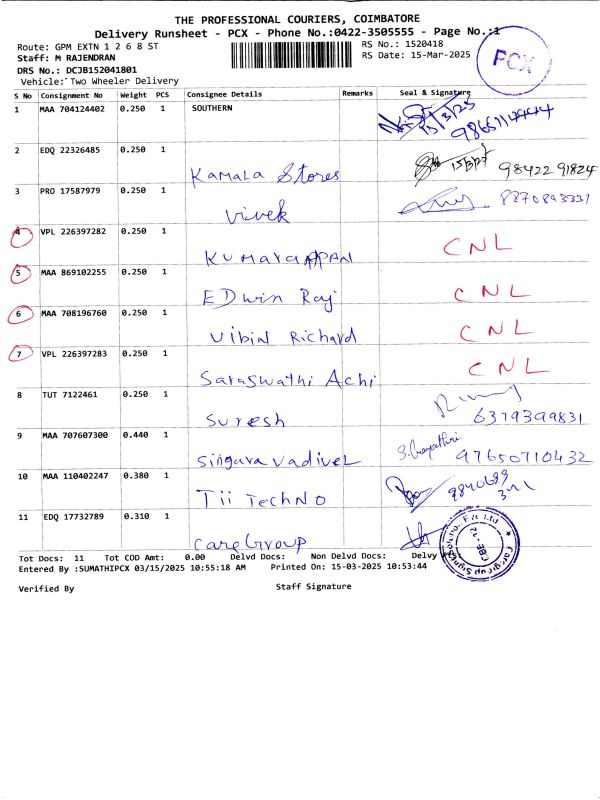 THE PROFESSIONAL COURIERS, COIMBATORE
Delivery Runsheet - PCX - Phone No.:0422-3505555 - Page No.:1
Route: GPM EXTN 1 2 6 8 ST RS No.: 1520418
Staff: M RAJENDRAN RS Date: 15-Mar-2025
DRS No.: DCJB152041801
Vehicle: Two Wheeler Delivery
PCX
S No Consignment No Weight PCS Consignee Details Remarks Seal & Signature
1 MAA 704124402 0.250 1 SOUTHERN 15/3/25
2 EDQ 22326485 0.250 1 Kamala Stores 98422 91824
3 PRO 17587979 0.250 1 Vivek
4 VPL 226397282 0.250 1 Kumarappan CNL
5 MAA 869102255 0.250 1 EDwin Raj CNL
6 MAA 708196760 0.250 1 Vibin Richard CNL
7 VPL 226397283 0.250 1 Saraswathi Achi CNL
8 TUT 7122461 0.250 1 Suresh 6379399831
9 MAA 707607300 0.440 1 Singaravadivel 97650710432
10 MAA 110402247 0.380 1 Tii Techno
11 EDQ 17732789 0.310 1 careGroup
Tot Docs: 11 Tot COD Amt: 0.00 Delvd Docs: Non Delvd Docs: Delvy
Entered By :SUMATHIPCX 03/15/2025 10:55:18 AM Printed On: 15-03-2025 10:53:44
Verified By Staff Signature